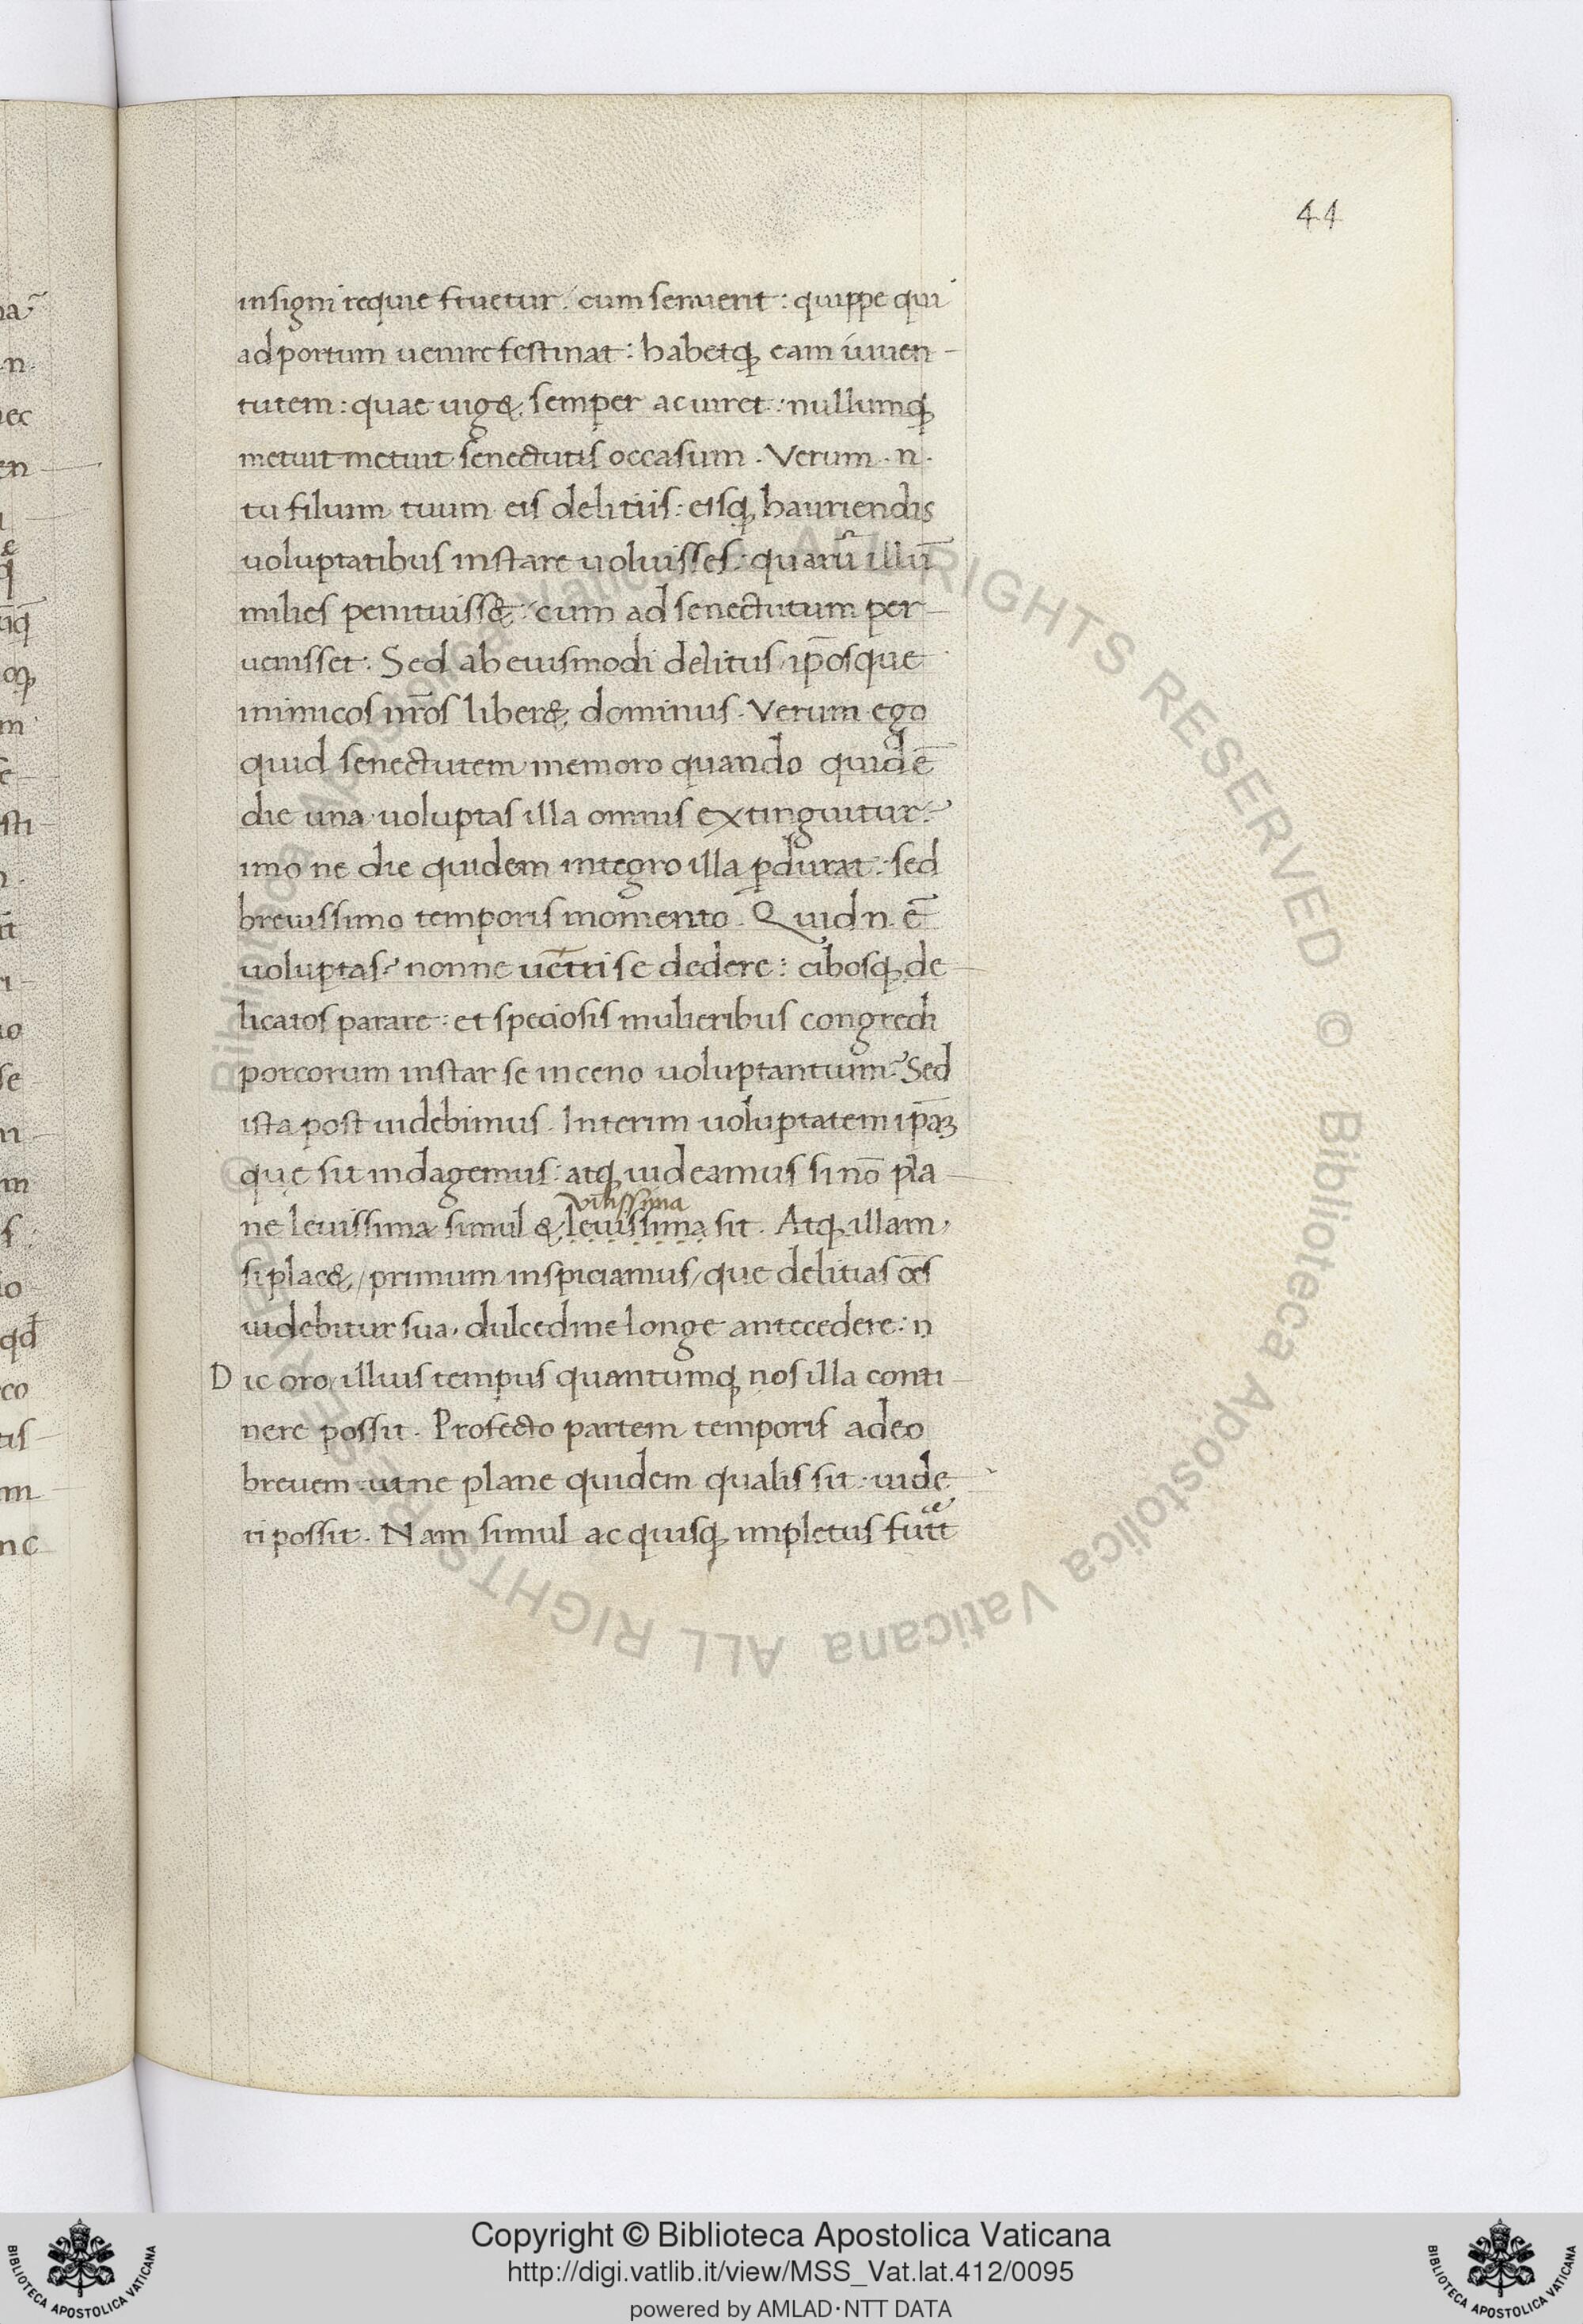 44
insigni requie fruetur: cum senuerit: quippe qui
ad portum uenire festinat: habetq; eam iuuen-
tutem: quae uig&, semper ac uiret: nullumq;
metuit metuit senectutis occasum. Verum .n.
tu filium tuum eis delitiis: eisq; hauriendis
uoluptatibus instare uoluisses: quarū illū
milies penituiss&: cum ad senectutum per-
uenisset. Sed ab eiusmodi delitiis, ip̄osque
inimicos nr̄os liber&, dominus. Verum ego
quid senectutem memoro quando quidē
die una uoluptas illa omnis extinguitur?
imo ne die quidem integro illa ꝑdurat: sed
breuissimo temporis momento. Quid n. ē
uoluptas? nonne uētri se dedere: cibosq; de-
licatos parare: et speciosis mulieribus congredi
porcorum instar se in ceno uoluptantium? Sed
ista post uidebimus. Interim uoluptatem ip̄aȝ
quę sit indagemus: atq; uideamus si nō pla-
vilissima
ne leuissima simul &, leuissima sit. Atq; illam,
si plac&, / primum inspiciamus, que delitias oēs
uidebitur sua, dulcedine longe antecedere: n
Dic oro, illius tempus quantumq; nos illa conti-
nere possit. Profecto partem temporis adeo
breuem ut ne plane quidem qualis sit: uide-
ri possit. Nam simul ac quisq; impletus fuīt
© Biblioteca Apostolica Vaticana ALL RIGHTS RESERVED © Biblioteca Apostolica Vaticana ALL RIGHTS RESERVED
Copyright © Biblioteca Apostolica Vaticana
http://digi.vatlib.it/view/MSS_Vat.lat.412/0095
powered by AMLAD·NTT DATA
BIBLIOTECA APOSTOLICA VATICANA
BIBLIOTECA APOSTOLICA VATICANA